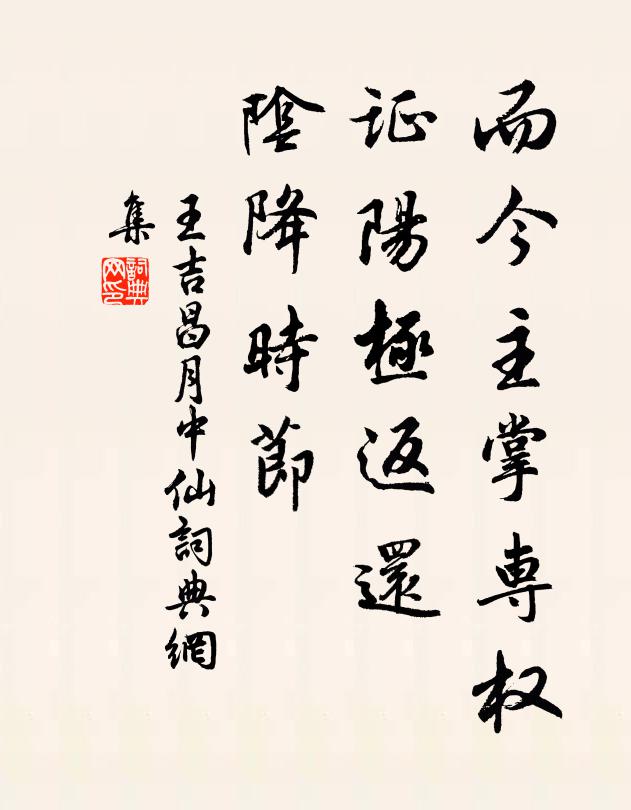 而今主掌専权
证陽極返還
陰降時節
王吉昌月中仙詞典網
集
詞典
网印